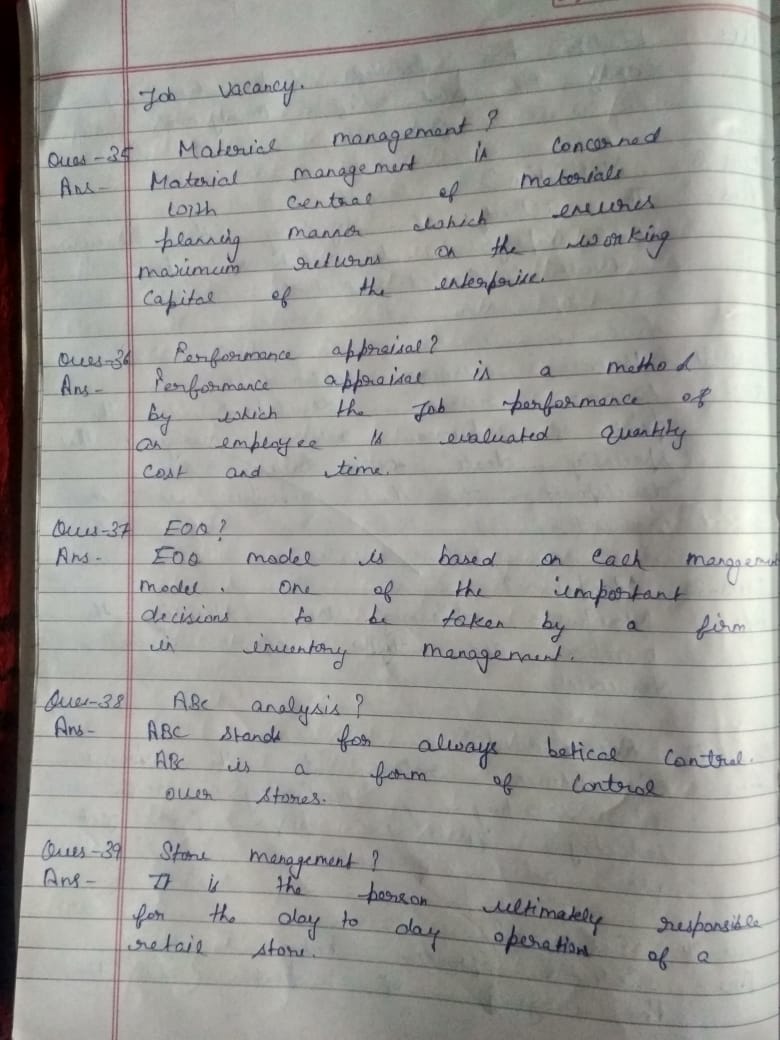 Job vacancy.
Ques-35 Material management?
Ans- Material management is concerned
with Central of materials
planning manner which ensures
maximum returns on the working
Capital of the enterprise.
Ques-36 Performance appraisal?
Ans- Performance appraisal is a method
by which the Job performance of
an employee is evaluated quantity
cost and time.
Ques-37 EOQ?
Ans- EOQ model is based on Cach management
model. One of the important
decisions to be taken by a firm
in inventory management.
Ques-38 ABC analysis?
Ans- ABC stands for always betical Control.
ABC is a form of Control
over stores.
Ques-39 Store management?
Ans- It is the person ultimately responsible
for the day to day operation of a
retail store.